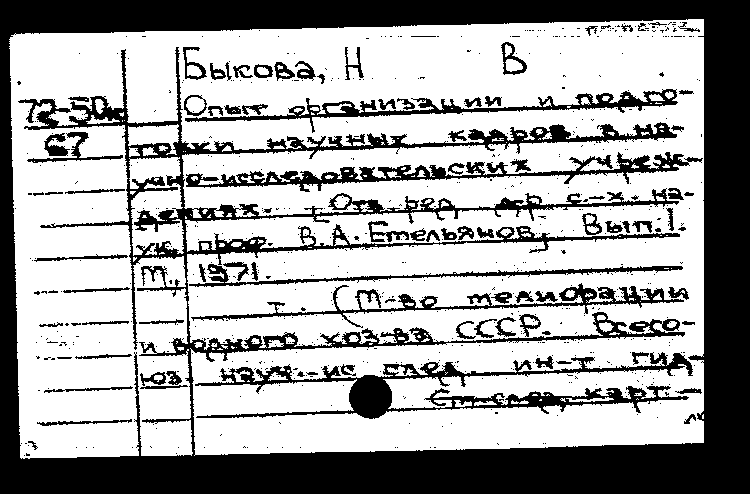 Быкова, Н В
72-50
67
Опыт организации и подго-
товки научных кадров в на-
учно-исследовательских учреж-
дениях. [Отв. ред. д-р с.-х. на-
ук, проф. В.А. Емельянов]. Вып. 1.
М., 1971.
т. (М-во мелиорации
и водного хоз-ва СССР. Всесо-
юз. науч.-ис след. ин-т гид-
См. след. карт.